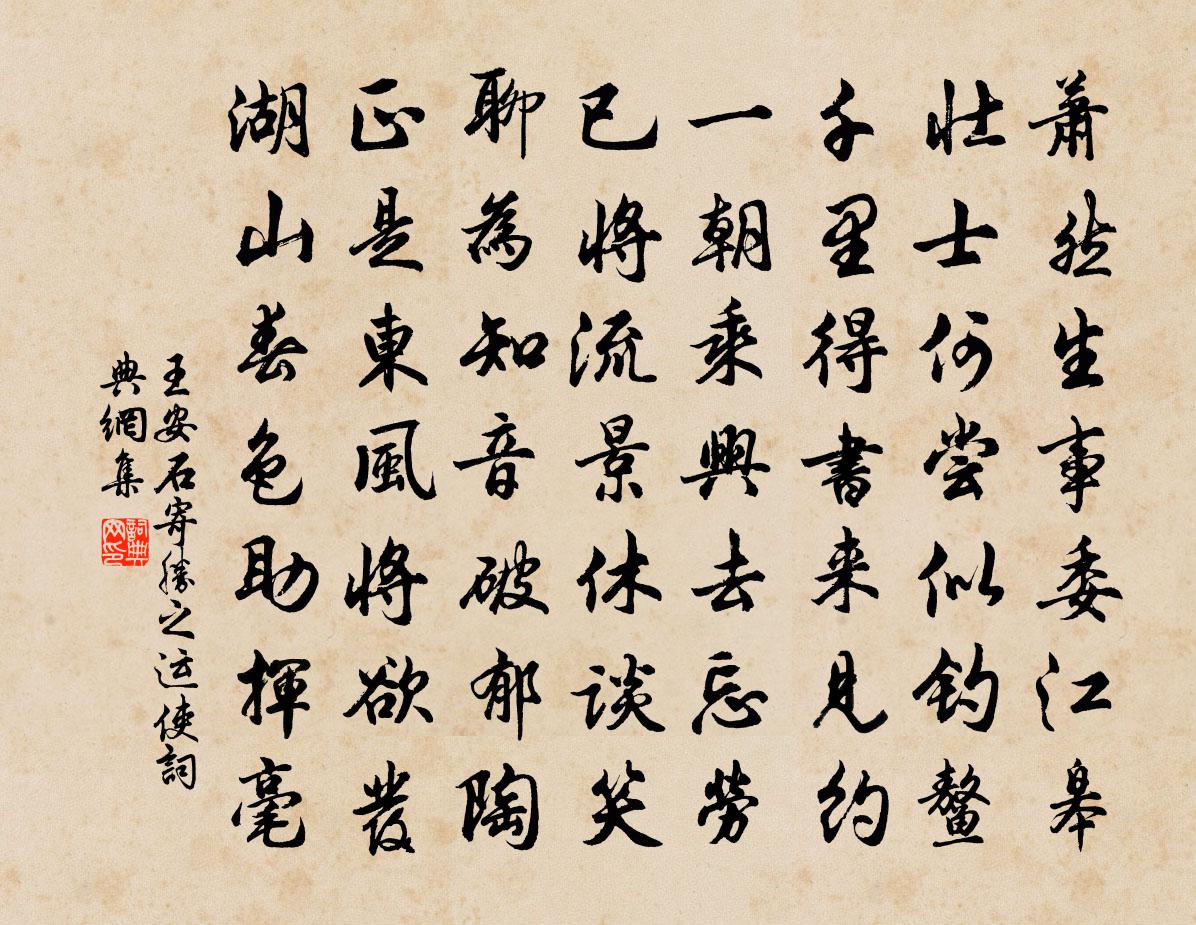 蕭然生事委江皋
壯士何嘗似釣鼇
千里得書来見約
一朝乘興去忘勞
已將流景休談笑
聊為知音破郁陶
正是東風將欲發
湖山春色助揮毫
王安石寄勝之运使詞
典網集
詞典
网印